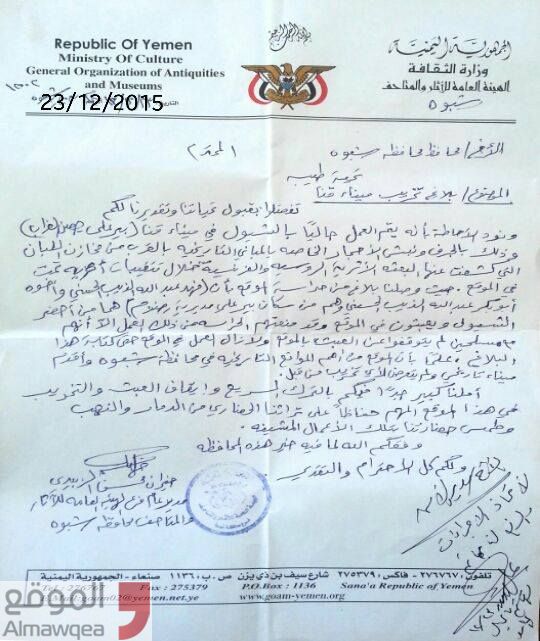 Republic Of Yemen
Ministry Of Culture
General Organization of Antiquities
and Museums
الجمهورية اليمنية
وزارة الثقافة
الهيئة العامة للآثار والمتاحف
شبوه
23/12/2015
الأخ/ محافظ محافظة شبوه المحترم
تحية طيبه
الموضوع/ بلاغ تخريب ميناء قنا
تفضلوا بقبول تحياتنا وتقديرنا لكم
ونود الاحاطة بأنه يتم العمل حالياً بالشيول في ميناء قنا (بير علي حصن الغراب)
وذلك بالجرف ونبش الأحجار الخاصه بالمباني التاريخيه بالقرب من مخازن اللبان
التي كشفت عنها البعثه الأثرية الروسيه والفرنسية خلال تنقيبات أثريه تمت
في الموقع. حيث وصلنا بلاغ من حراسة الموقع بأن (فهد عبدالله لذيب الحسني وأخوه
أبوبكر عبدالله لذيب الحسني وهم من سكان بير علي مديرية رضوم) هما من أحضر
الشيول ويعبثون في الموقع وقد منعتهم الحراسه من ذلك العمل الا أنهم
مسلحين لم يتوقفوا عن العبث بالموقع ولازال العمل في الموقع حتى كتابة هذا
البلاغ. علماً بأن الموقع من أهم المواقع التاريخيه في محافظة شبوه وأقدم
ميناء تاريخي ولم يتعرض لأي تخريب من قبل.
أملنا كبير جداً فيكم بالتحرك السريع وإيقاف العبث والتخريب
في هذا الموقع المهم حفاظاً على تراثنا الحضاري من الدمار والنهب
وطمس حضارتنا بتلك الأعمال المشينه.
وفقكم الله لما فيه خير هذه المحافظه
ولكم كل الاحترام والتقدير
خيران محسن الزبيدي
مدير عام فرع الهيئه العامه للآثار
والمتاحف محافظة شبوه
لاتخاذ الاجراءات
تلفون: ٢٧٦٧٦٧ - فاكس: ٢٧٥٣٧٩ شارع سيف بن ذي يزن ص.ب: ١١٣٦ صنعاء - الجمهورية اليمنية
Fax : 275379 P.O.Box : 1136 Sana'a Republic of Yemen
www.goam-yemen.org
الموقع
Almawqea